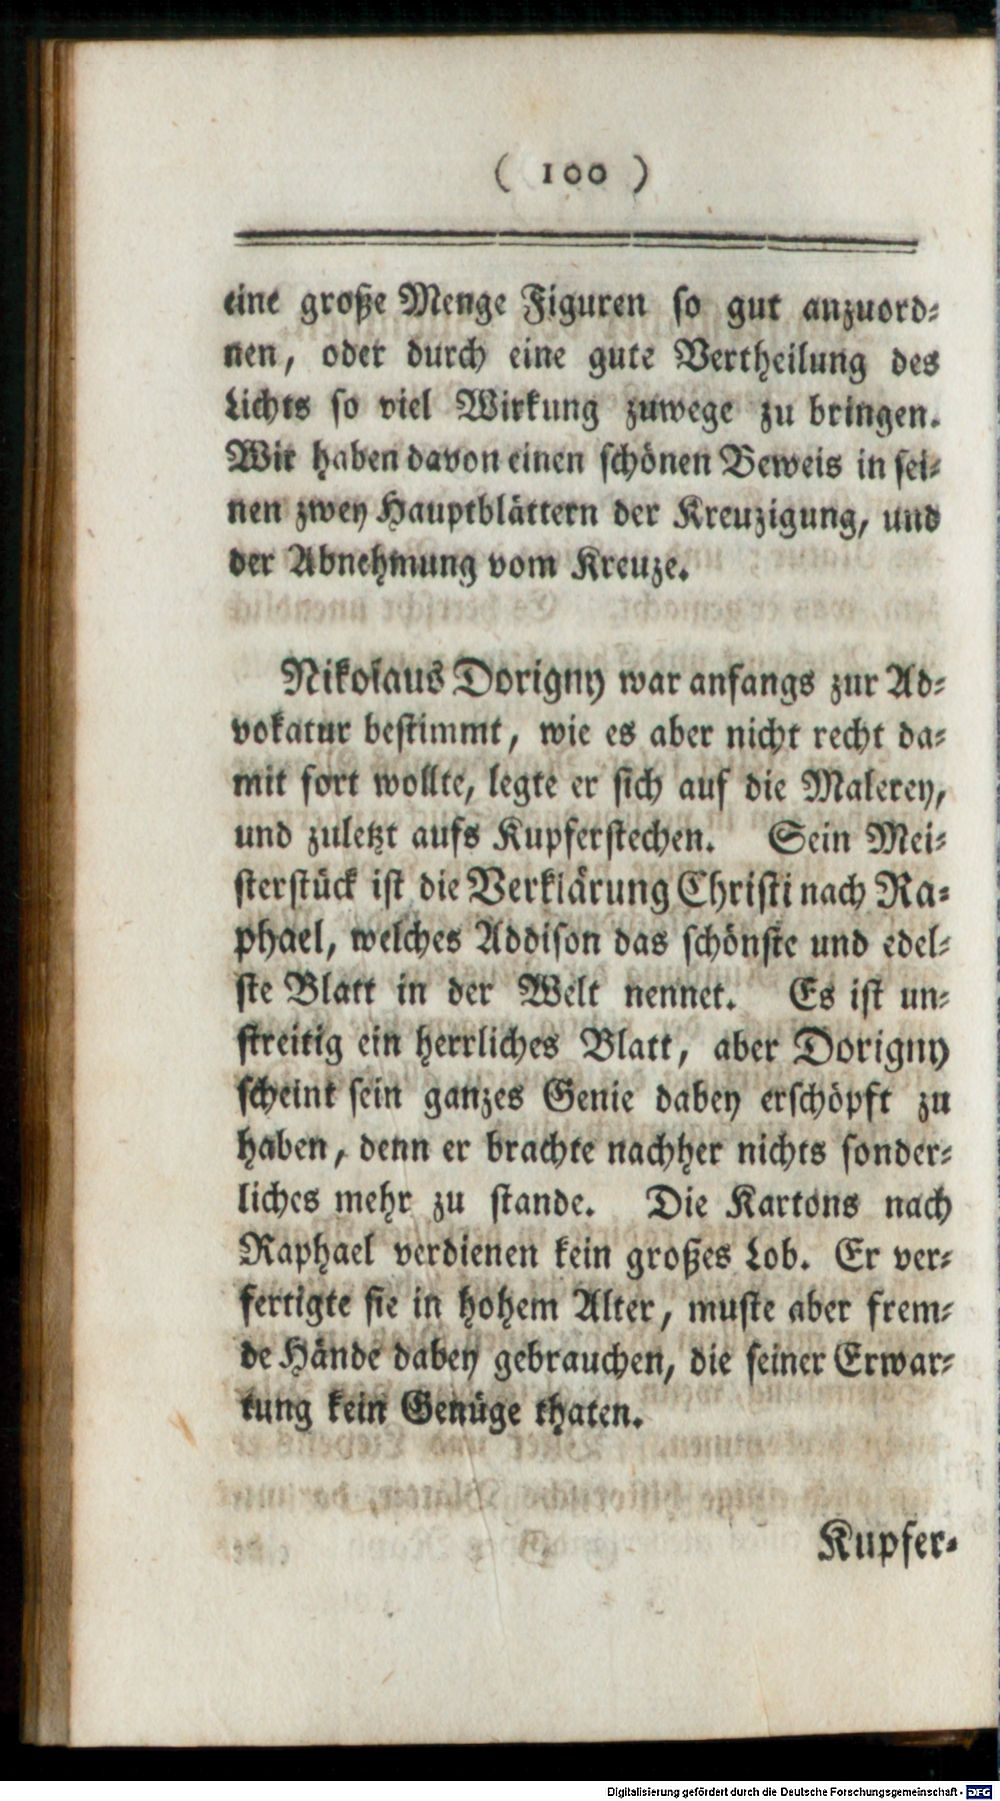 ( 100 )
eine große Menge Figuren so gut anzuord-
nen, oder durch eine gute Vertheilung des
Lichts so viel Wirkung zuwege zu bringen.
Wir haben davon einen schönen Beweis in sei-
nen zwey Hauptblättern der Kreuzigung, und
der Abnehmung vom Kreuze.
Nikolaus Dorigny war anfangs zur Ad-
vokatur bestimmt, wie es aber nicht recht da-
mit fort wollte, legte er sich auf die Malerey,
und zuletzt aufs Kupferstechen. Sein Mei-
sterstück ist die Verklärung Christi nach Ra-
phael, welches Addison das schönste und edel-
ste Blatt in der Welt nennet. Es ist un-
streitig ein herrliches Blatt, aber Dorigny
scheint sein ganzes Genie dabey erschöpft zu
haben, denn er brachte nachher nichts sonder-
liches mehr zu stande. Die Kartons nach
Raphael verdienen kein großes Lob. Er ver-
fertigte sie in hohem Alter, muste aber frem-
de Hände dabey gebrauchen, die seiner Erwar-
tung kein Genüge thaten.
Kupfer-
Digitalisierung gefördert durch die Deutsche Forschungsgemeinschaft - DFG